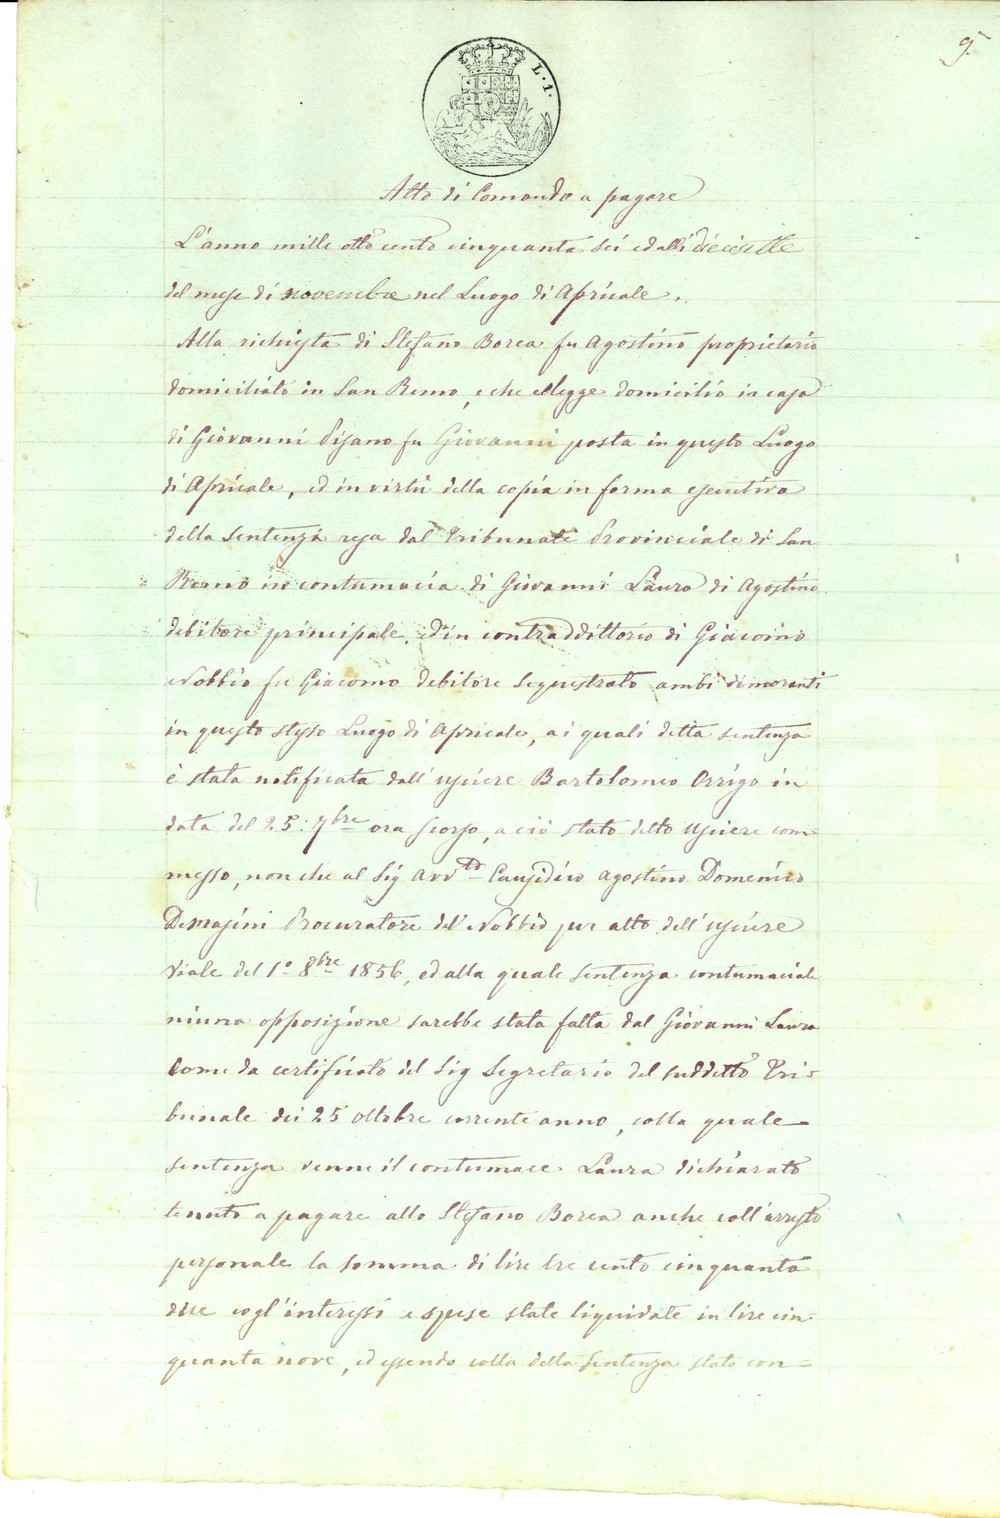 9.
L. 1.
Atto di Comando a pagare
L'anno mille otto cento cinquanta sei ed alli diecisette
del mese di novembre nel Luogo di Apricale.
Alla richiesta di Stefano Borea fu Agostino proprietario
domiciliato in San Remo, e che ellegge domicilio in casa
di Giovanni Pisano fu Giovanni posta in questo Luogo
di Apricale, ed in virtù della copia in forma esecutiva
della sentenza resa dal Tribunale Provinciale di San
Remo in contumacia di Giovanni Laura di Agostino
debitore principale, ed in contraddittorio di Giacomo
Nobbio fu Giacomo debitore sequestrato ambi dimoranti
in questo stesso Luogo di Apricale, a i quali detta sentenza
è stata notificata dall'usciere Bartolomeo Orrigo in
data del 25: 7bre ora scorso, a ciò stato detto usciere com=
messo, non che al Sig Avvto Causidico Agostino Domenico
Demasini Procuratore del Nobbio per atto dell'usciere
Viale del 1° 8bre 1856, ed alla quale sentenza contumaciale
niuna opposizione sarebbe stata fatta dal Giovanni Laura
come da certificato del Sig Segretario del suddetto Tri=
bunale dei 25 ottobre corrente anno, colla quale
sentenza venne il contumace Laura dichiarato
tenuto a pagare allo Stefano Borea anche coll'arresto
personale la somma di lire tre cento cinquanta
due cogl'interessi e spese state liquidate in lire cin=
quanta nove, ed essendo colla detta sentenza stato con=